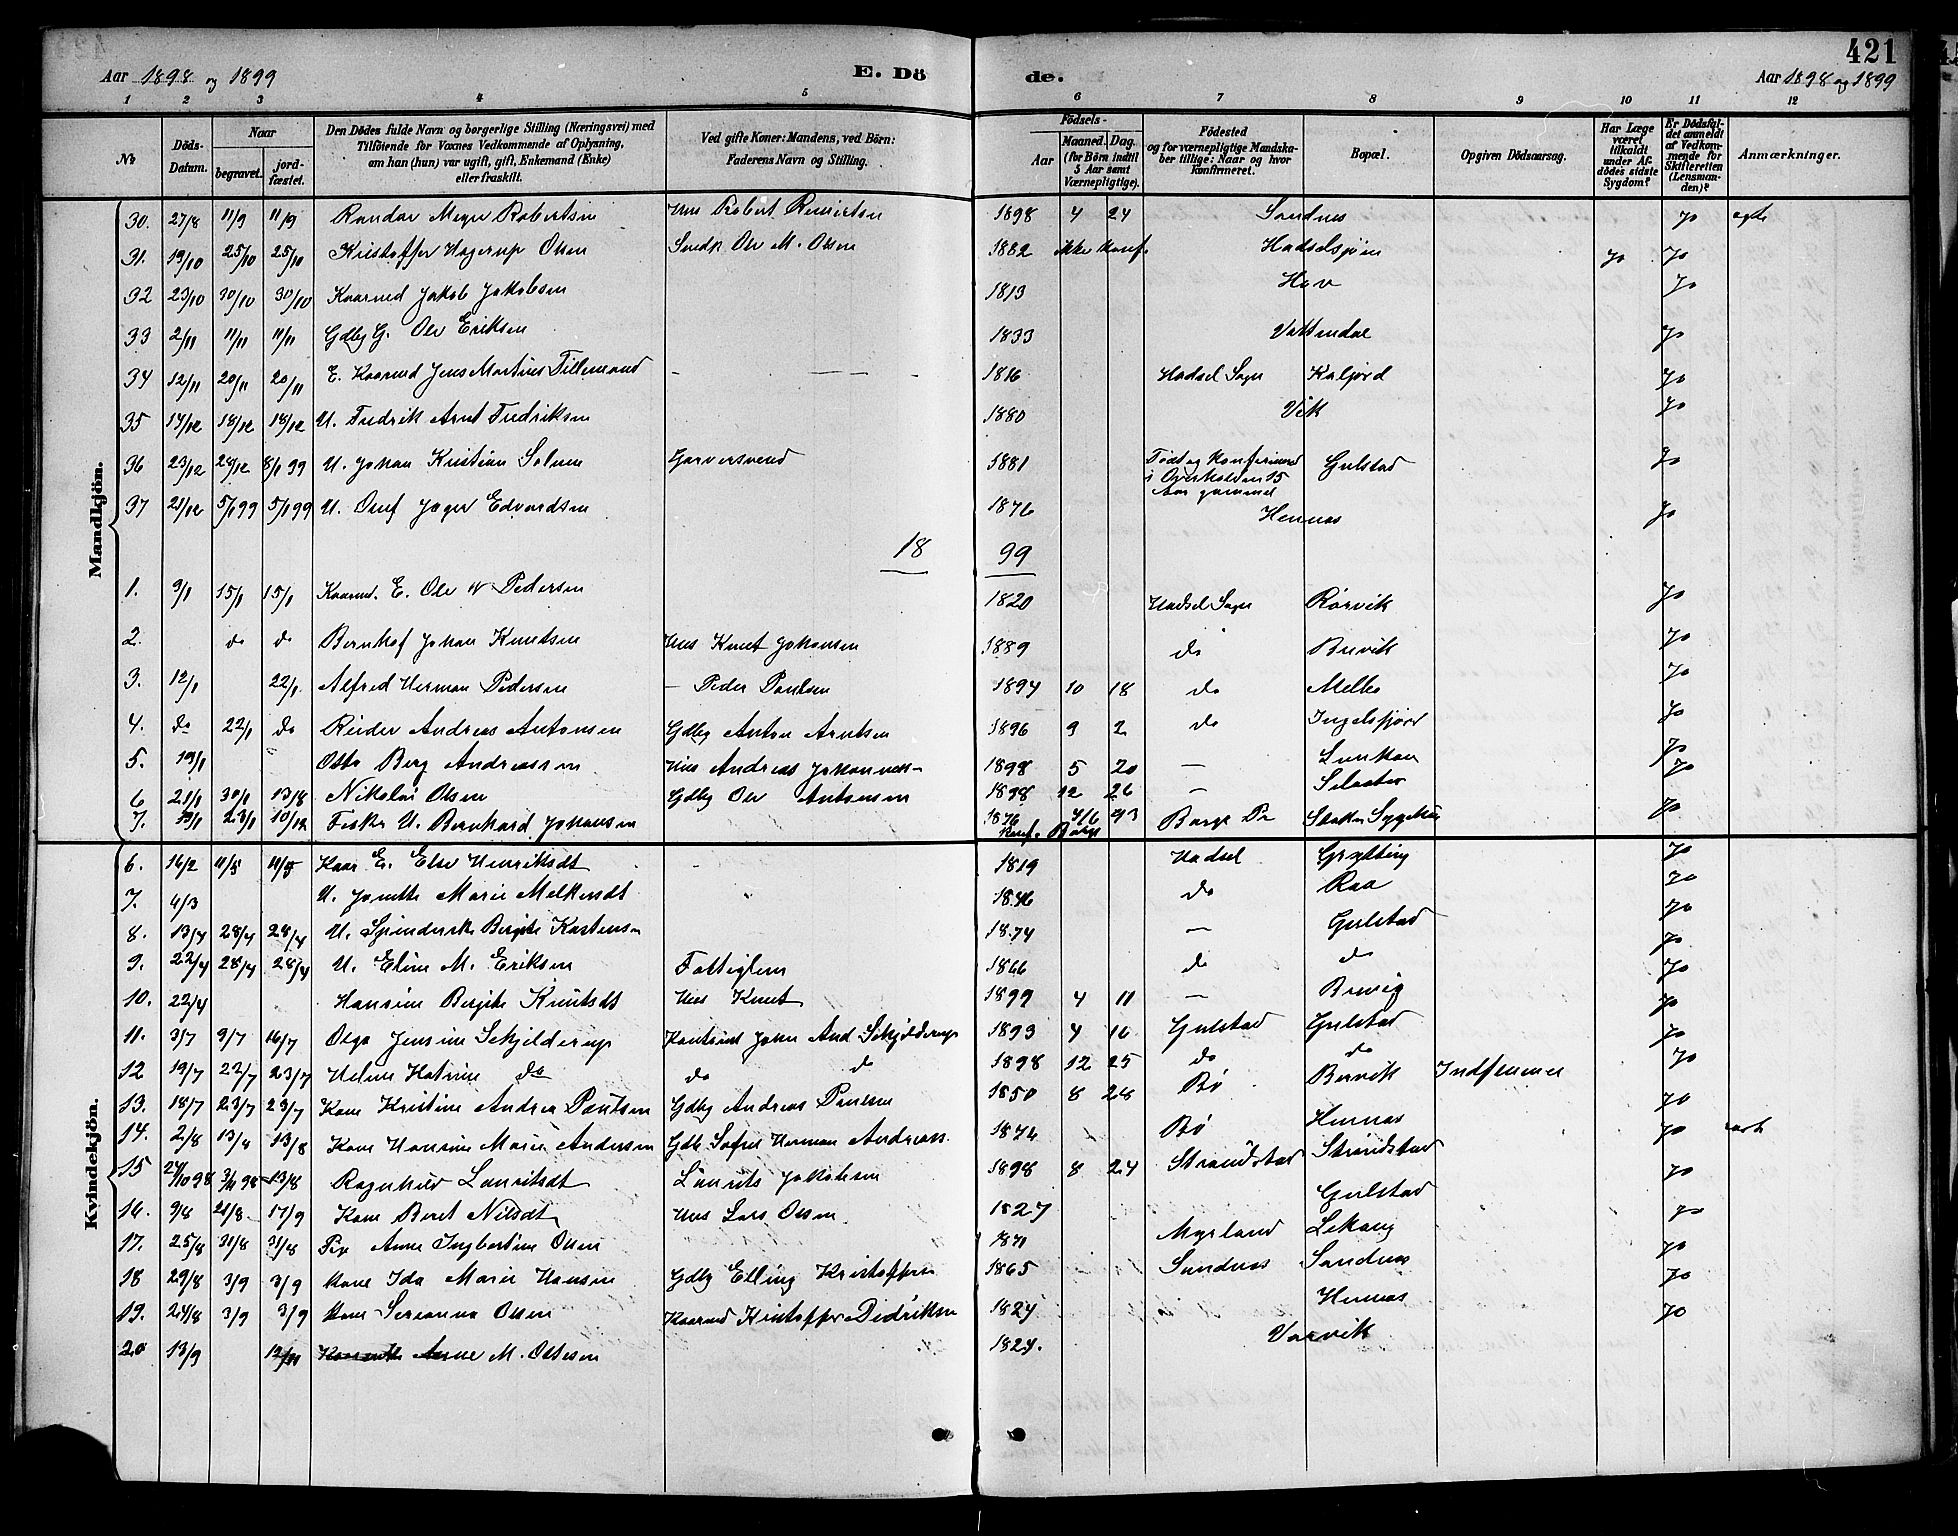 Aar 1898 og 1899 E. Dö de. 421
Aar 1898 og 1899
1 2 3 4 5 6 7 8 9 10 11 12
No
Döds-Datum.
Naar begravet. jordfæstet.
Den Dödes fulde Navn og borgerlige Stilling (Næringsvei) med Tilföiende for Voxnes Vedkommende af Oplysning, om han (hun) var ugift, gift, Enkemand (Enke) eller fraskilt.
Ved gifte Koner: Mandens, ved Börn: Faderens Navn og Stilling.
Födsels- Aar Maaned. Dag. (for Börn indtil 5 Aar samt Værnepligtige).
Födested og for værnepligtige Mandskaber tillige: Naar og hvor konfirmeret.
Bopæl.
Opgiven Dödsaarsag.
Har Læge været tilkaldt under Afdödes sidste Sygdom?
Er Dödsfaldet anmeldt af Vedkommende for Skifteretten (Lensmanden)?
Anmærkninger.
Mandkjön.
30. 27/8 11/9 11/9 Randar Meyer Robertsen Hus Robert 1898 4 24 Sandnes Jo ægte
31. 19/10 25/10 25/10 Kristoffer Hagerup Olsen Ole M. Olsen 1882 ikke konf. Jo Jo
32 23/10 30/10 30/10 Kaarmd Jakob Jakobsen 1813 Hov Jo
33 2/11 11/11 11/11 Gdbg G. Ole Eriksen 1833 Vattendal Jo
34 12/11 20/11 20/11 E. Kaarmd Jens Martinus Tillemand 1816 Hadsel Sogn Kaljord Jo
35 14/12 18/12 18/12 U. Fredrik Arnt Fredriksen 1880 Vik Jo
36 23/12 28/12 8/1 99 U. Johan Kristian Solem Garversvend 1881 Födt og konfirmered i Overhalden 15 Aar gammel Gulstad Jo
37 21/12 5/1 99 5/1 99 U. Oluf Jæger Edvardsen 1876 Hennes Jo
18 99
1. 9/1 15/1 15/1 Kaarmd. E. Ole Pedersen 1820 Hadsel Sogn Rörvik Jo
2. do do Bernhof Johan Knutsen Hus Knut Johansen 1889 do Brevik Jo
3. 12/1 22/1 Alfred Herman Pedersen — Peder Paulsen 1894 10 18 do Melbo Jo
4. do 22/1 do Reider Andreas Antonsen Gdbg Anton Arntsen 1896 9 2 do Ingelsfjord Jo
5. 19/1 Otto Berg Andreassen Hus Andreas 1898 5 20 — Lunkan Jo
6 21/1 30/1 13/8 Nikolai Olsen Gdbg Ole Antonsen 1898 12 26 — Jo
7. 19/1 23/1 10/12 Fisker U. Bernhard Johansen 1876 4/6 93 Konf. Borge Borge Pr Jo
Kvindekjön.
6. 16/2 11/5 11/5 Kaar E. Else Henriksdt 1819 Hadsel Grytting Jo
7. 4/3 U. Jonette Marie Melkersdt 1846 do Raa Jo
8. 13/4 28/4 28/4 U. Spinderske Bergite 1874 — Gulstad Jo
9. 22/4 28/4 28/4 U. Eline M. Eriksen Fattiglem 1866 do do Jo
10. 22/4 Hansine Bergite Knutsdt Hus Knut 1899 4 11 — Brevig Jo
11. 3/7 9/7 16/7 Olga Jensine Schjelderup John And Schjelderup 1893 4 16 Gulstad Gulstad Jo
12 19/7 22/7 23/7 Helene Katrine do do do 1898 12 25 do do Jo
13. 18/7 23/7 23/7 Kone Kristine Andrea Paulsen Gdbg Andreas Paulsen 1850 8 28 Bö Brevik Jo
14. 2/8 13/8 13/8 Kone Hansine Marie Andersen Gdb Herman Andreass. 1874 Bö Hennes Jo
15 24/10 98 3/11 98 13/8 Ragnhild Lauritsdt Laurits Jakobsen 1898 8 24 Strandstad Strandstad Jo
16. 9/8 21/8 17/9 Kone Beret Nilsdt Hus Lars Olsen 1827 Gulstad Jo
17. 25/8 31/8 31/8 Anne Ingbertine Olsen Myrland Lekang Jo
18 29/8 3/9 3/9 Kone Ida Marie Hansen Gdbg Elling 1865 Sandnes Sandnes Jo
19. 24/8 3/9 3/9 Kone Olsen Kaarmd Kristoffer Didriksen 1824 Hennes Jo
20 13/9 12/11 Anne M. Ottesen 1824. Vorvik